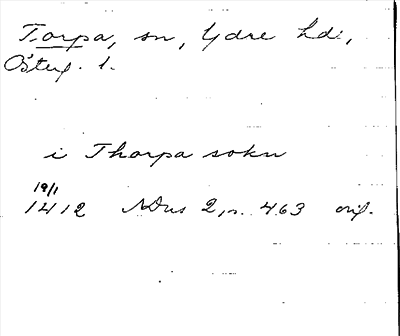 Torpa, sn, Ydre hd.,
Österg. l.
i Thorpa sokn
19/1
1412 NDns 2, n. 463 orig.